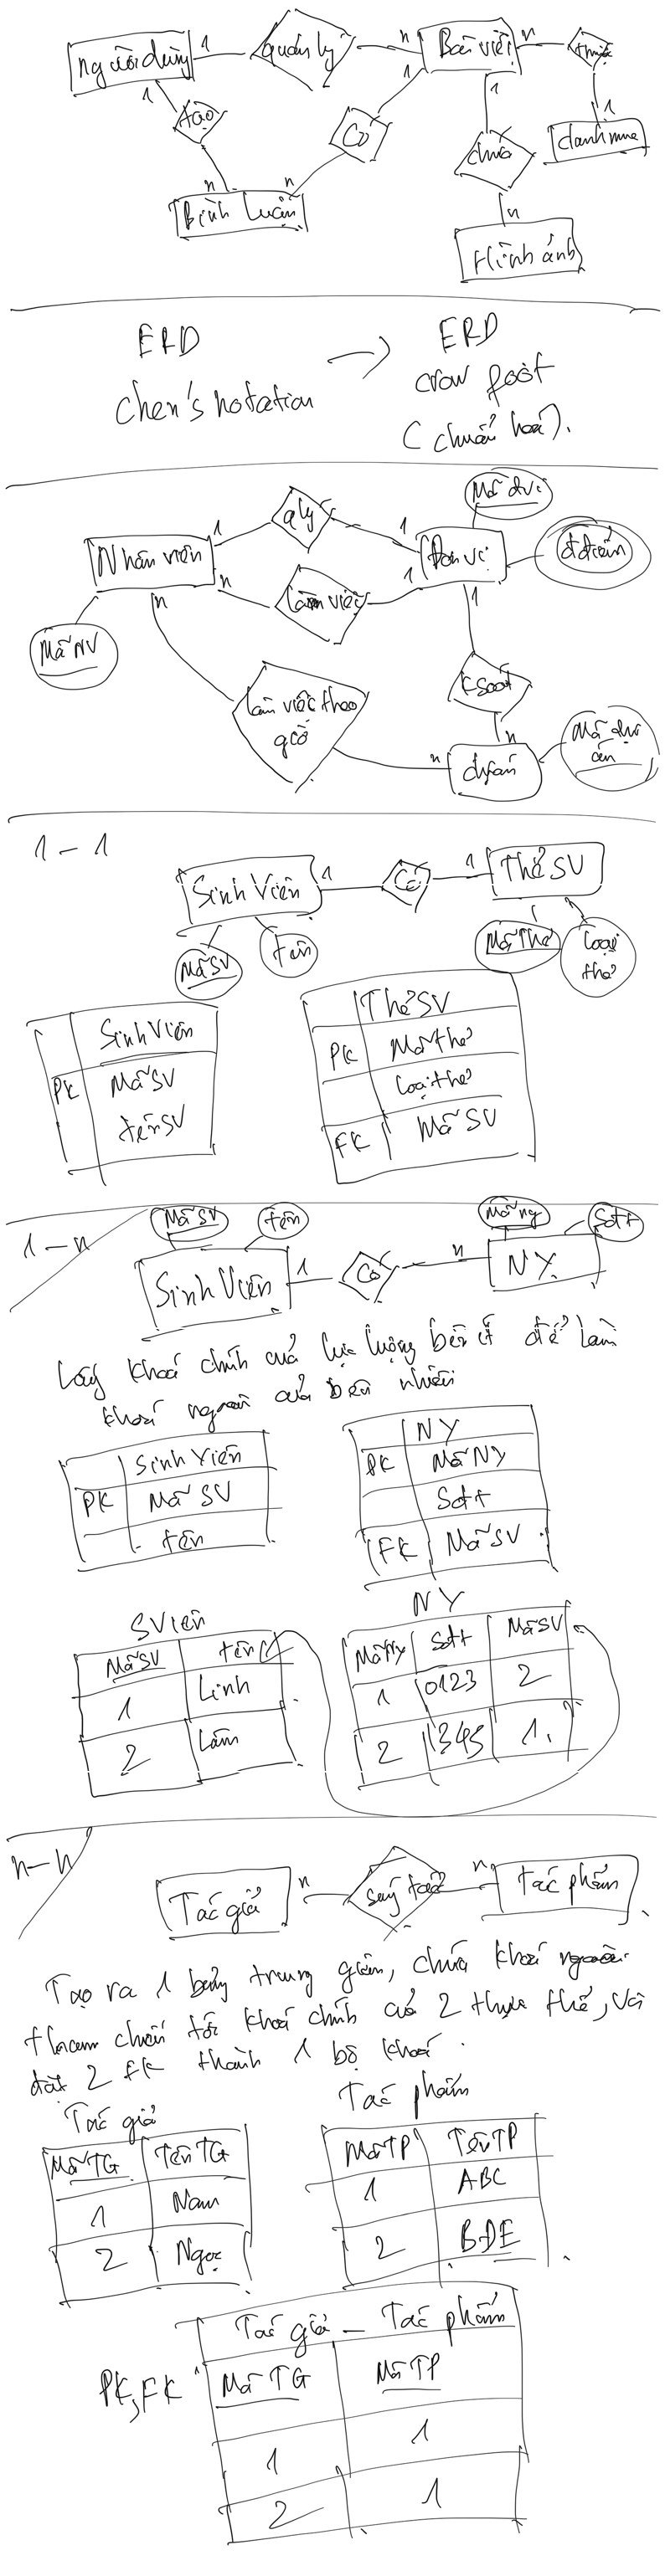 người dùng 1 quản lý n Bài viết n thuộc
1 1 1 1
tạo Có chứa danh mục
n n n
Bình luận Hình ảnh
ERD ERD
chen's notation crow foot
(chuẩn hoá).
Mã đvị
Nhân viên 1 qlý 1 Đơn vị đ điểm
n làm việc 1 1
n
Mã NV
làm việc theo
giờ
k soát
n n
dự án
Mã dự
án
1 - 1
Sinh Viên 1 Có 1 Thẻ SV
Mã SV tên Mã Thẻ loại
thẻ
Sinh Viên
PK Mã SV
tên SV
Thẻ SV
PK Mã thẻ
loại thẻ
FK Mã SV
1 - n
Mã SV tên Mã ny Sđt
Sinh Viên 1 Có n NY
Lấy khoá chính của lực lượng bên ít để làm
khoá ngoại của bên nhiều
Sinh Viên
PK Mã SV
tên
NY
PK Mã NY
Sđt
FK Mã SV
SViên
Mã SV tên
1 Linh
2 Lâm
NY
Mã Ny Sđt Mã SV
1 0123 2
2 1345 1.
n - n
Tác giả n sáng tác n Tác phẩm
Tạo ra 1 bảng trung gian, chứa khoá ngoại
tham chiếu tới khoá chính của 2 thực thể, và
đặt 2 FK thành 1 bộ khoá.
Tác giả
Mã TG Tên TG
1 Nam
2 Ngọc
Tác phẩm
Mã TP Tên TP
1 ABC
2 BDE
Tác giả - Tác phẩm
PK, FK Mã TG Mã TP
1 1
2 1